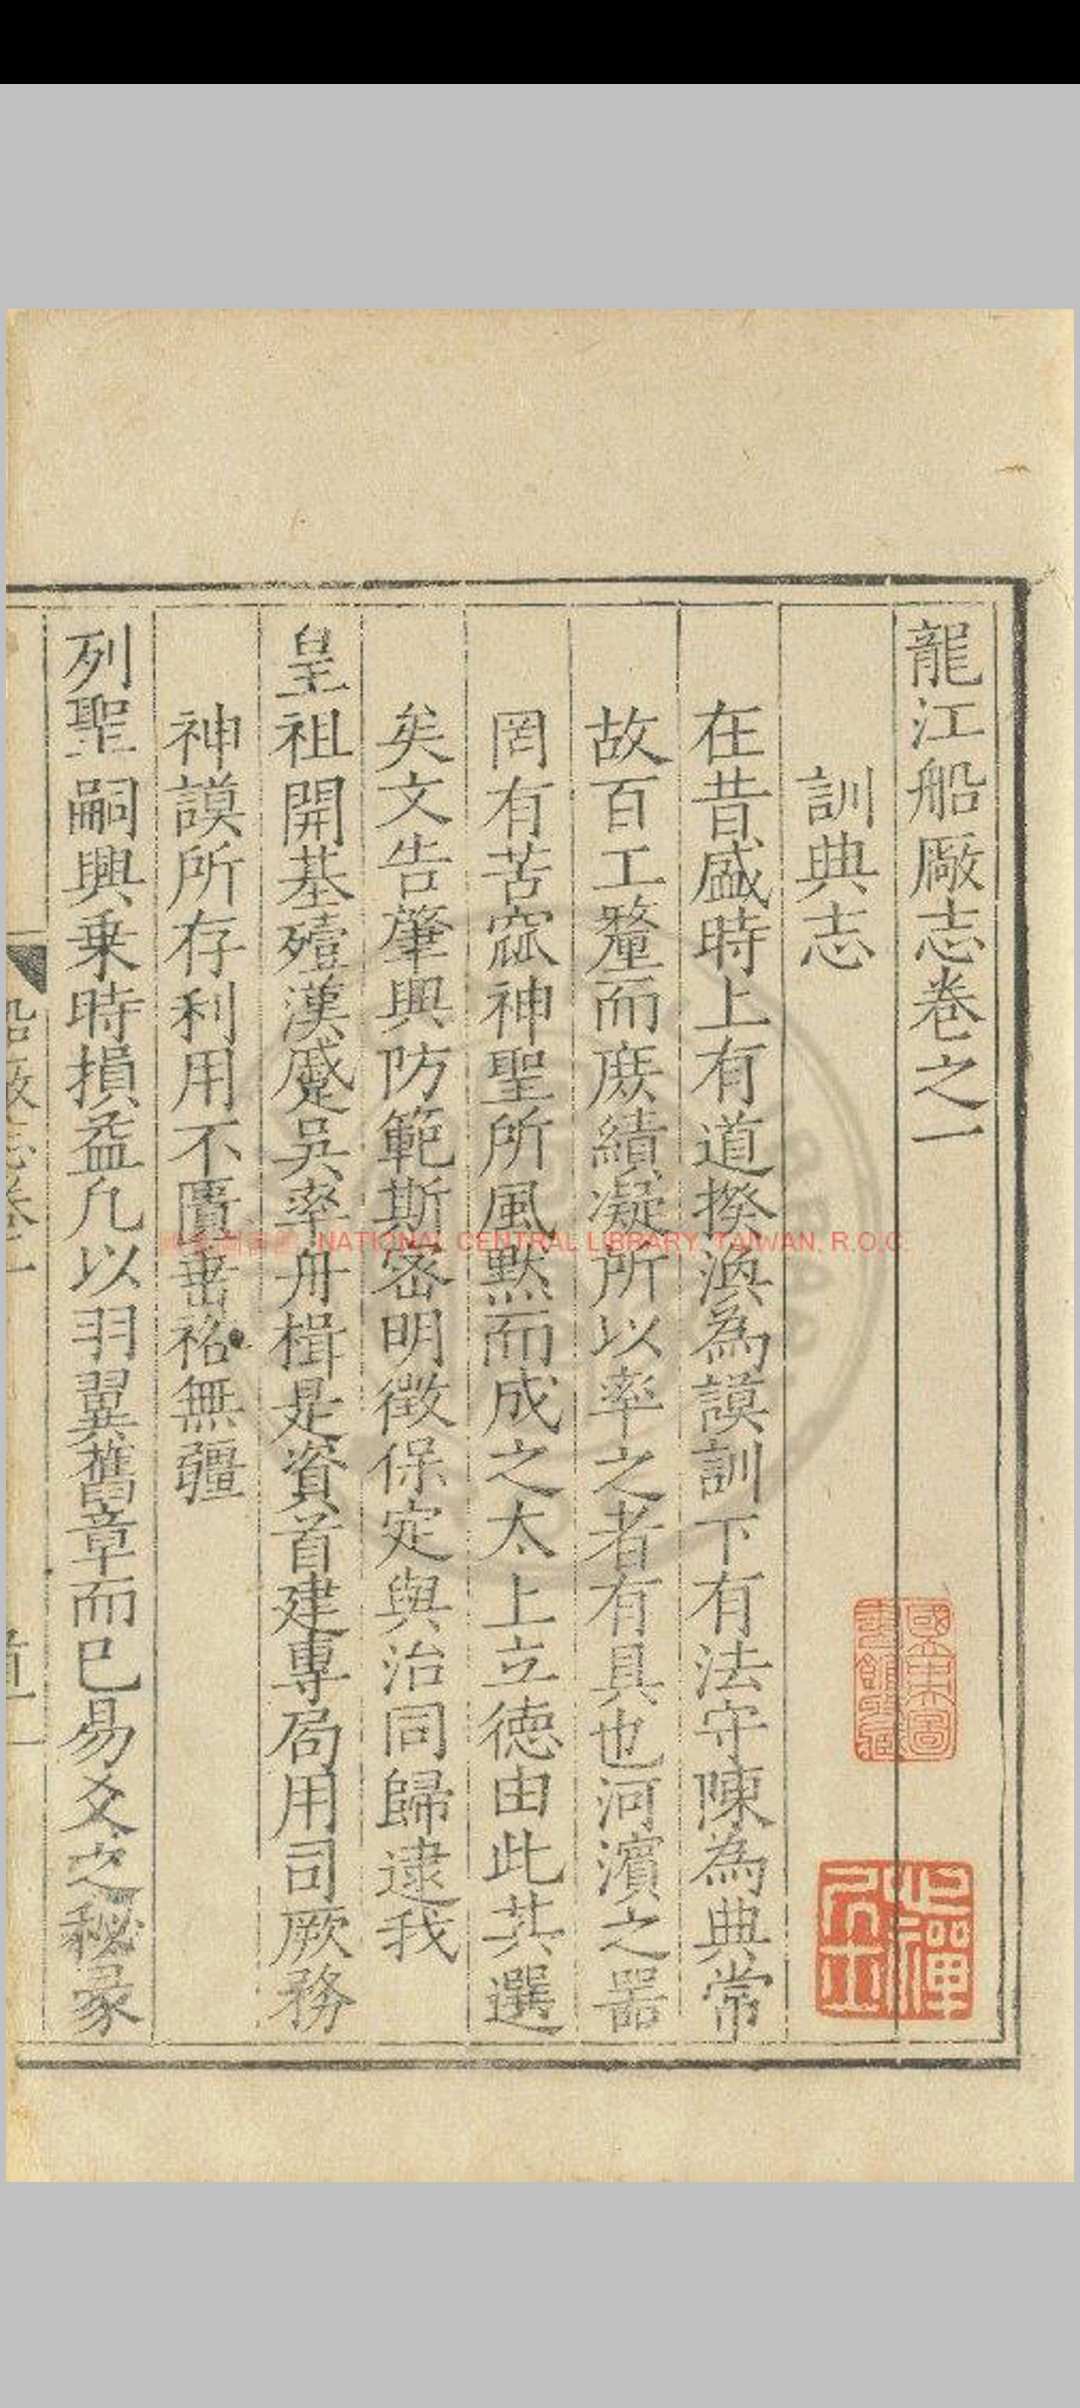 龍江船厰志卷之一
訓典志
在昔盛時上有道揆渙為謨訓下有法守陳為典常
故百工釐而庶績凝所以率之者有具也河濱之器
罔有苦窳神聖所風黙而成之太上立德由此其選
矣文告肇興防範斯密明徵保定與治同歸逮我
皇祖開基殪漢蹙吳率舟楫是資首建專局用司厥務
神謨所存利用不匱垂裕無疆
列聖嗣興乗時損益凡以羽翼舊章而已易爻之秘彖
船厰志卷之一
國立中央圖書館收藏
NATIONAL CENTRAL LIBRARY, TAIWAN, R.O.C